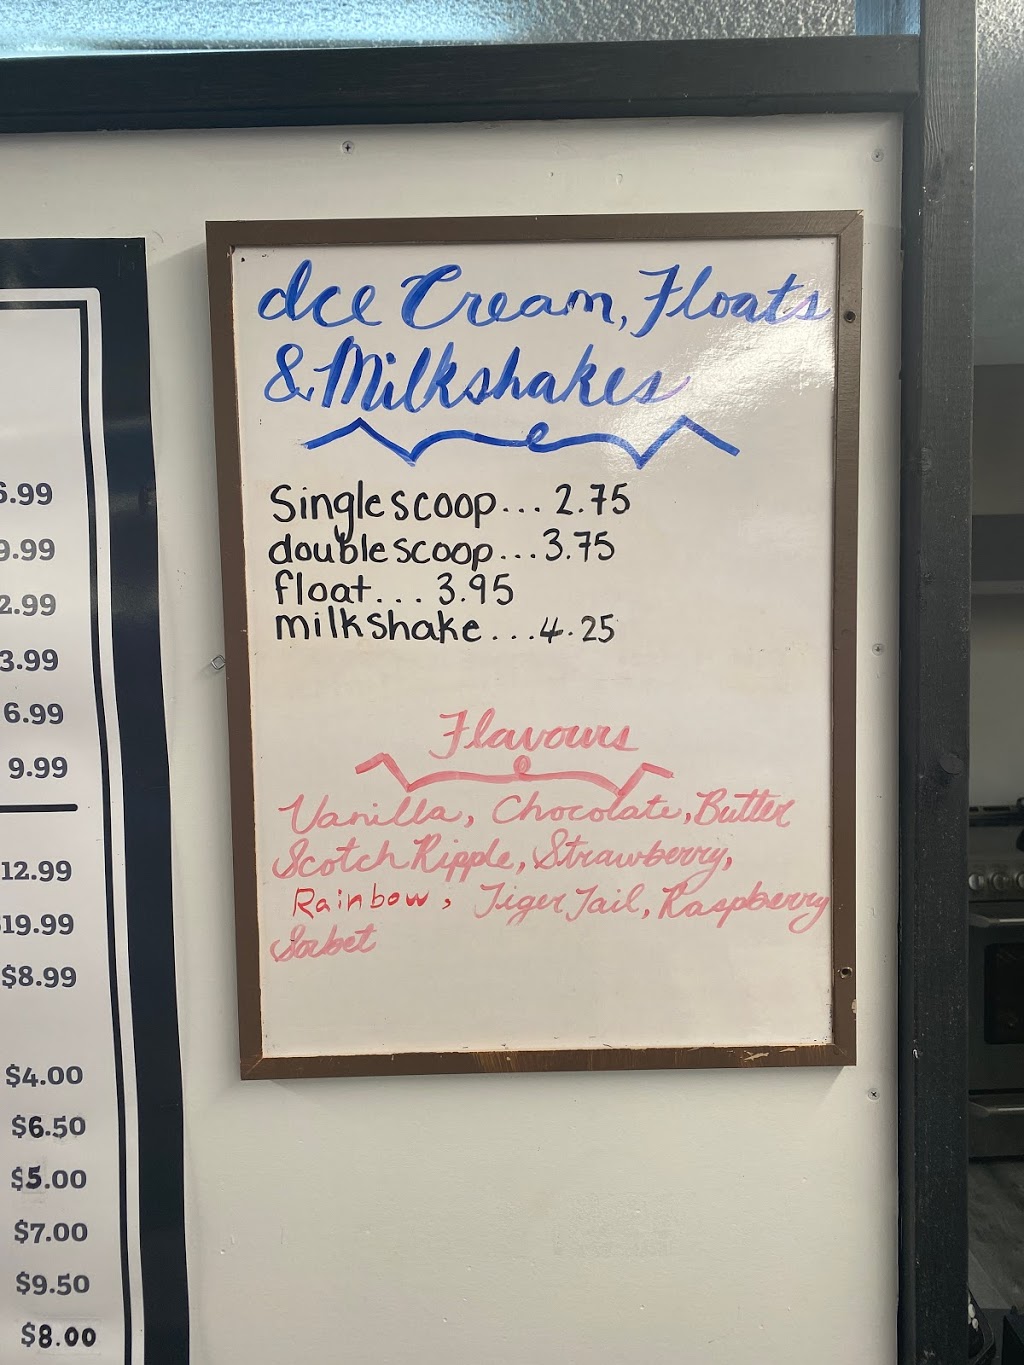 Ice Cream, Floats
& Milkshakes
Single scoop... 2.75
double scoop...3.75
float... 3.95
milkshake...4.25
Flavours
Vanilla, Chocolate, Butter
Scotch Ripple, Strawberry,
Rainbow, Tiger Tail, Raspberry
Sorbet
6.99
9.99
2.99
3.99
6.99
9.99
12.99
$19.99
$8.99
$4.00
$6.50
$5.00
$7.00
$9.50
$8.00